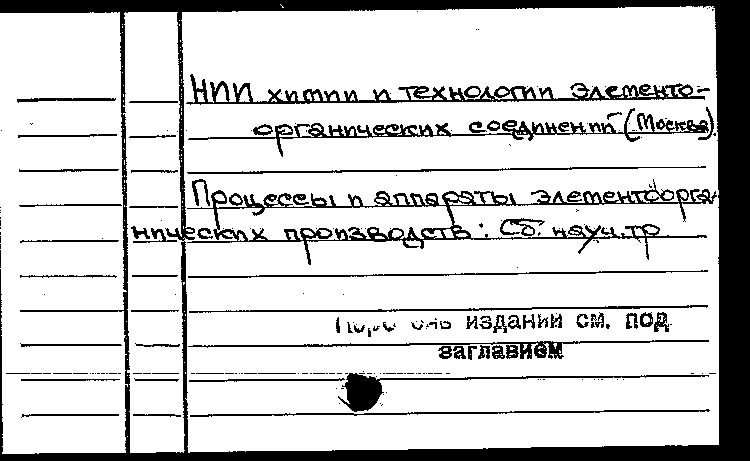 НИИ химии и технологии элементо-
органических соединений (Москва)
Процессы и аппараты элементоорга-
нических производств: Сб. науч. тр
издании см. под
заглавием